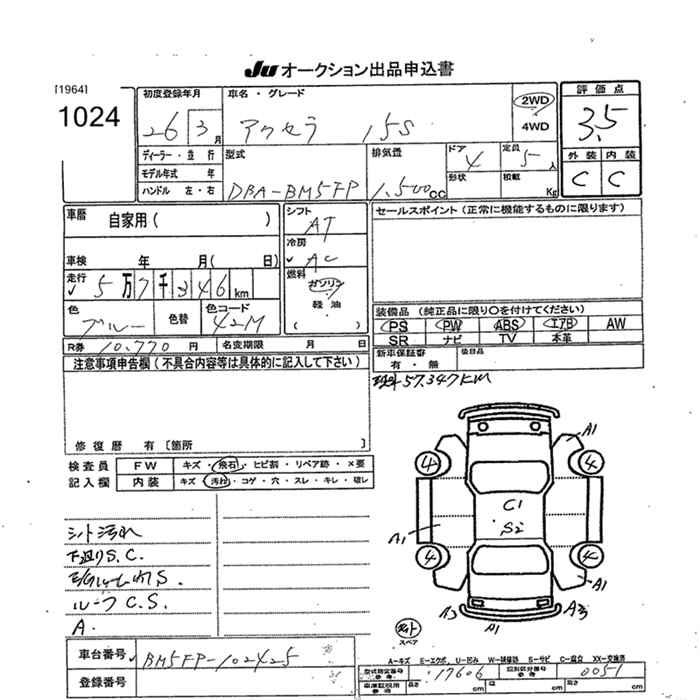 JU オークション出品申込書
[1964]
1024
初度登録年月
26 3月
車名・グレード
アクセラ 15S
2WD
4WD
評価点
3.5
外装 内装
C C
ディーラー・並行
モデル年式 年
ハンドル 左・右
型式
DBA-BM5FP
排気量
1,500cc
ドア
4
形状
定員
5人
積載
Kg
車歴
自家用( )
車検 年 月( 日)
走行
5万7千346km
色
ブルー
色替
色コード
42M
シフト
AT
冷房
AC
燃料
ガソリン
軽油
( )
セールスポイント(正常に機能するものに限ります)
装備品(純正品に限り○を付けてください)
PS PW ABS エアB AW
SR ナビ TV 本革
R券 10,770円
名変期限 月 日
新車保証書
有・無
後日品
57,347KM
注意事項申告欄(不具合内容等は具体的に記入して下さい)
修復歴 有[箇所 ]
検査員
記入欄
FW キズ・飛石・ヒビ割・リペア跡・×要
内装 キズ・汚れ・コゲ・穴・スレ・キレ・破レ
シート汚れ
下廻りS.C.
ルーフC.S.
A.
A1
4 4
C1
S2
A1
4 4
A1
A3
A1
A3
スペア
車台番号 BM5FP-102425
登録番号
A-キズ E-エクボ U-凹み W-補修跡 S-サビ C-腐食 XX-交換済
型式指定番号
参考
17606
類別区分番号
参考
0051
車庫証明用
参考
長さ cm
幅 cm
高 cm